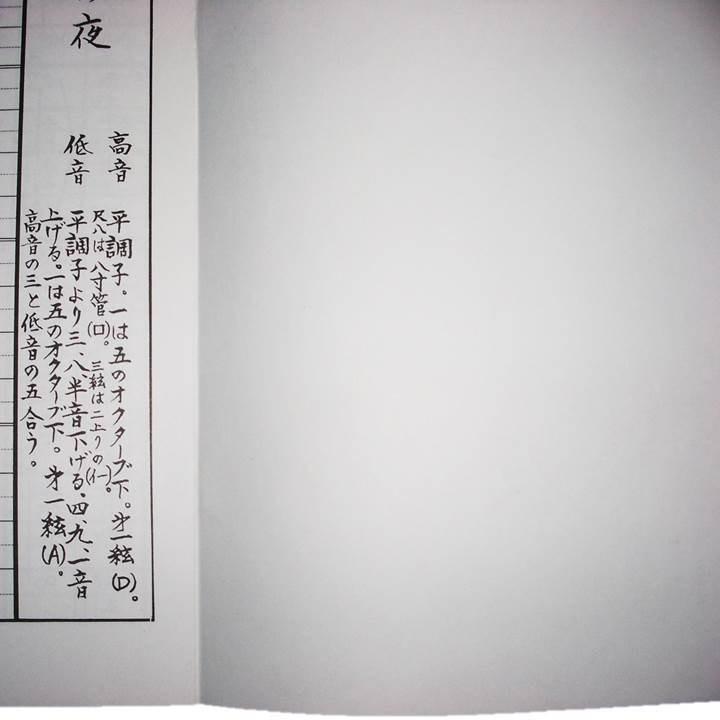 夜
高音 平調子。一は五のオクターブ下。才一絃(D)。
尺八は八寸管(ロ)。三絃は二上りの(イ)。
低音 平調子より三、八、半音下げる、四、九、一音
上げる。一は五のオクターブ下。才一絃(A)。
高音の三と低音の五合う。